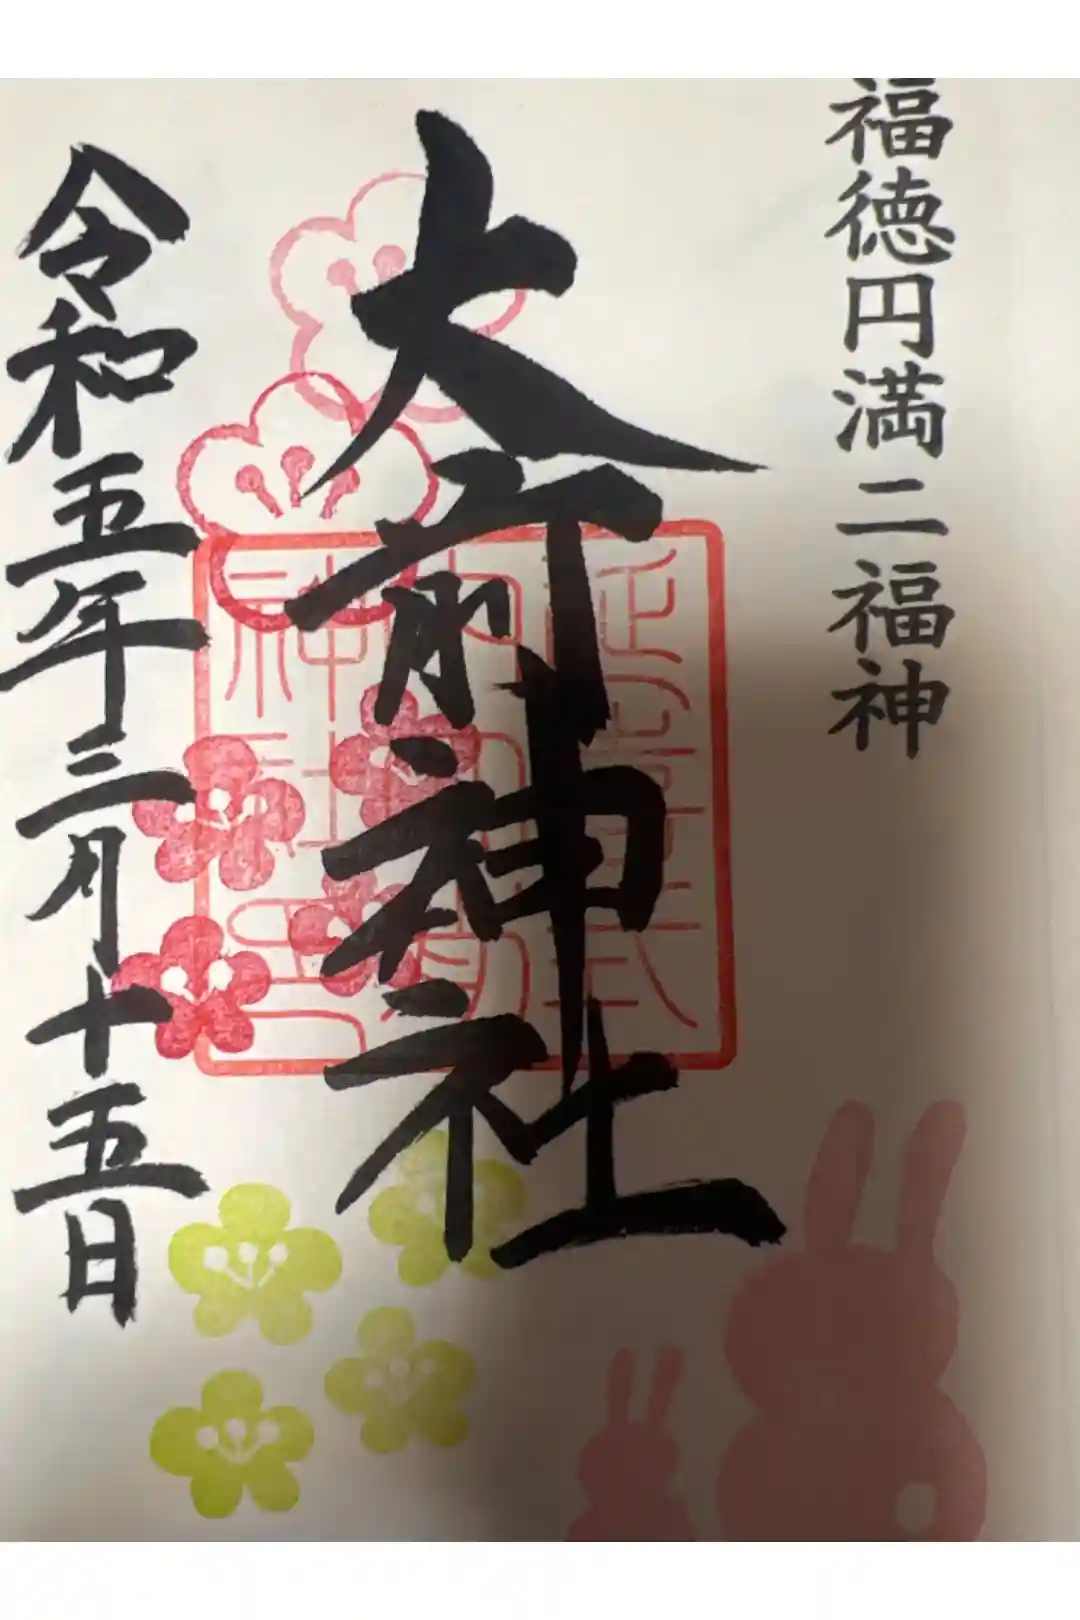 福徳円満二福神
大前神社
令和五年三月十五日